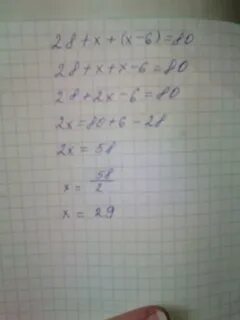 28+x+(x-6)=80
28+x+x-6=80
28+2x-6=80
2x=80+6-28
2x=58
x=58/2
x=29